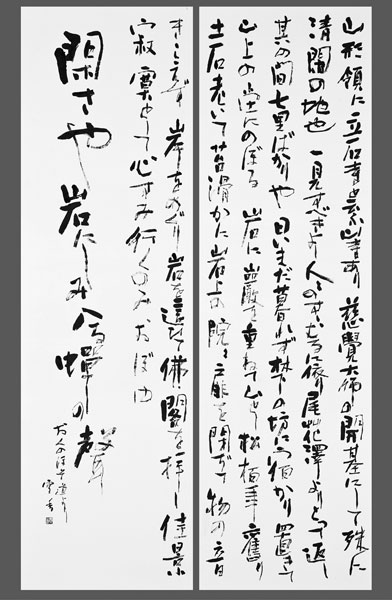 山形領に立石寺と云山寺あり 慈覺大師の開基にして殊に
清閑の地也 一見すべきよし人々のすゝむるに依り尾花澤よりとつて返し
其の間七里ばかり也 日いまだ暮れず梺の坊に宿かり置きて
山上の堂にのぼる 岩に巌を重ねて山とし松栢年舊り
土石老いて苔滑かに岩上の院々扉を閉ぢて物の音
きこえず 岸をめぐり岩を這ひて佛閣を拝し佳景
寂寞として心すみ行くのみおぼゆ
閑さや岩にしみ入る蝉の聲
おくのほそ道より